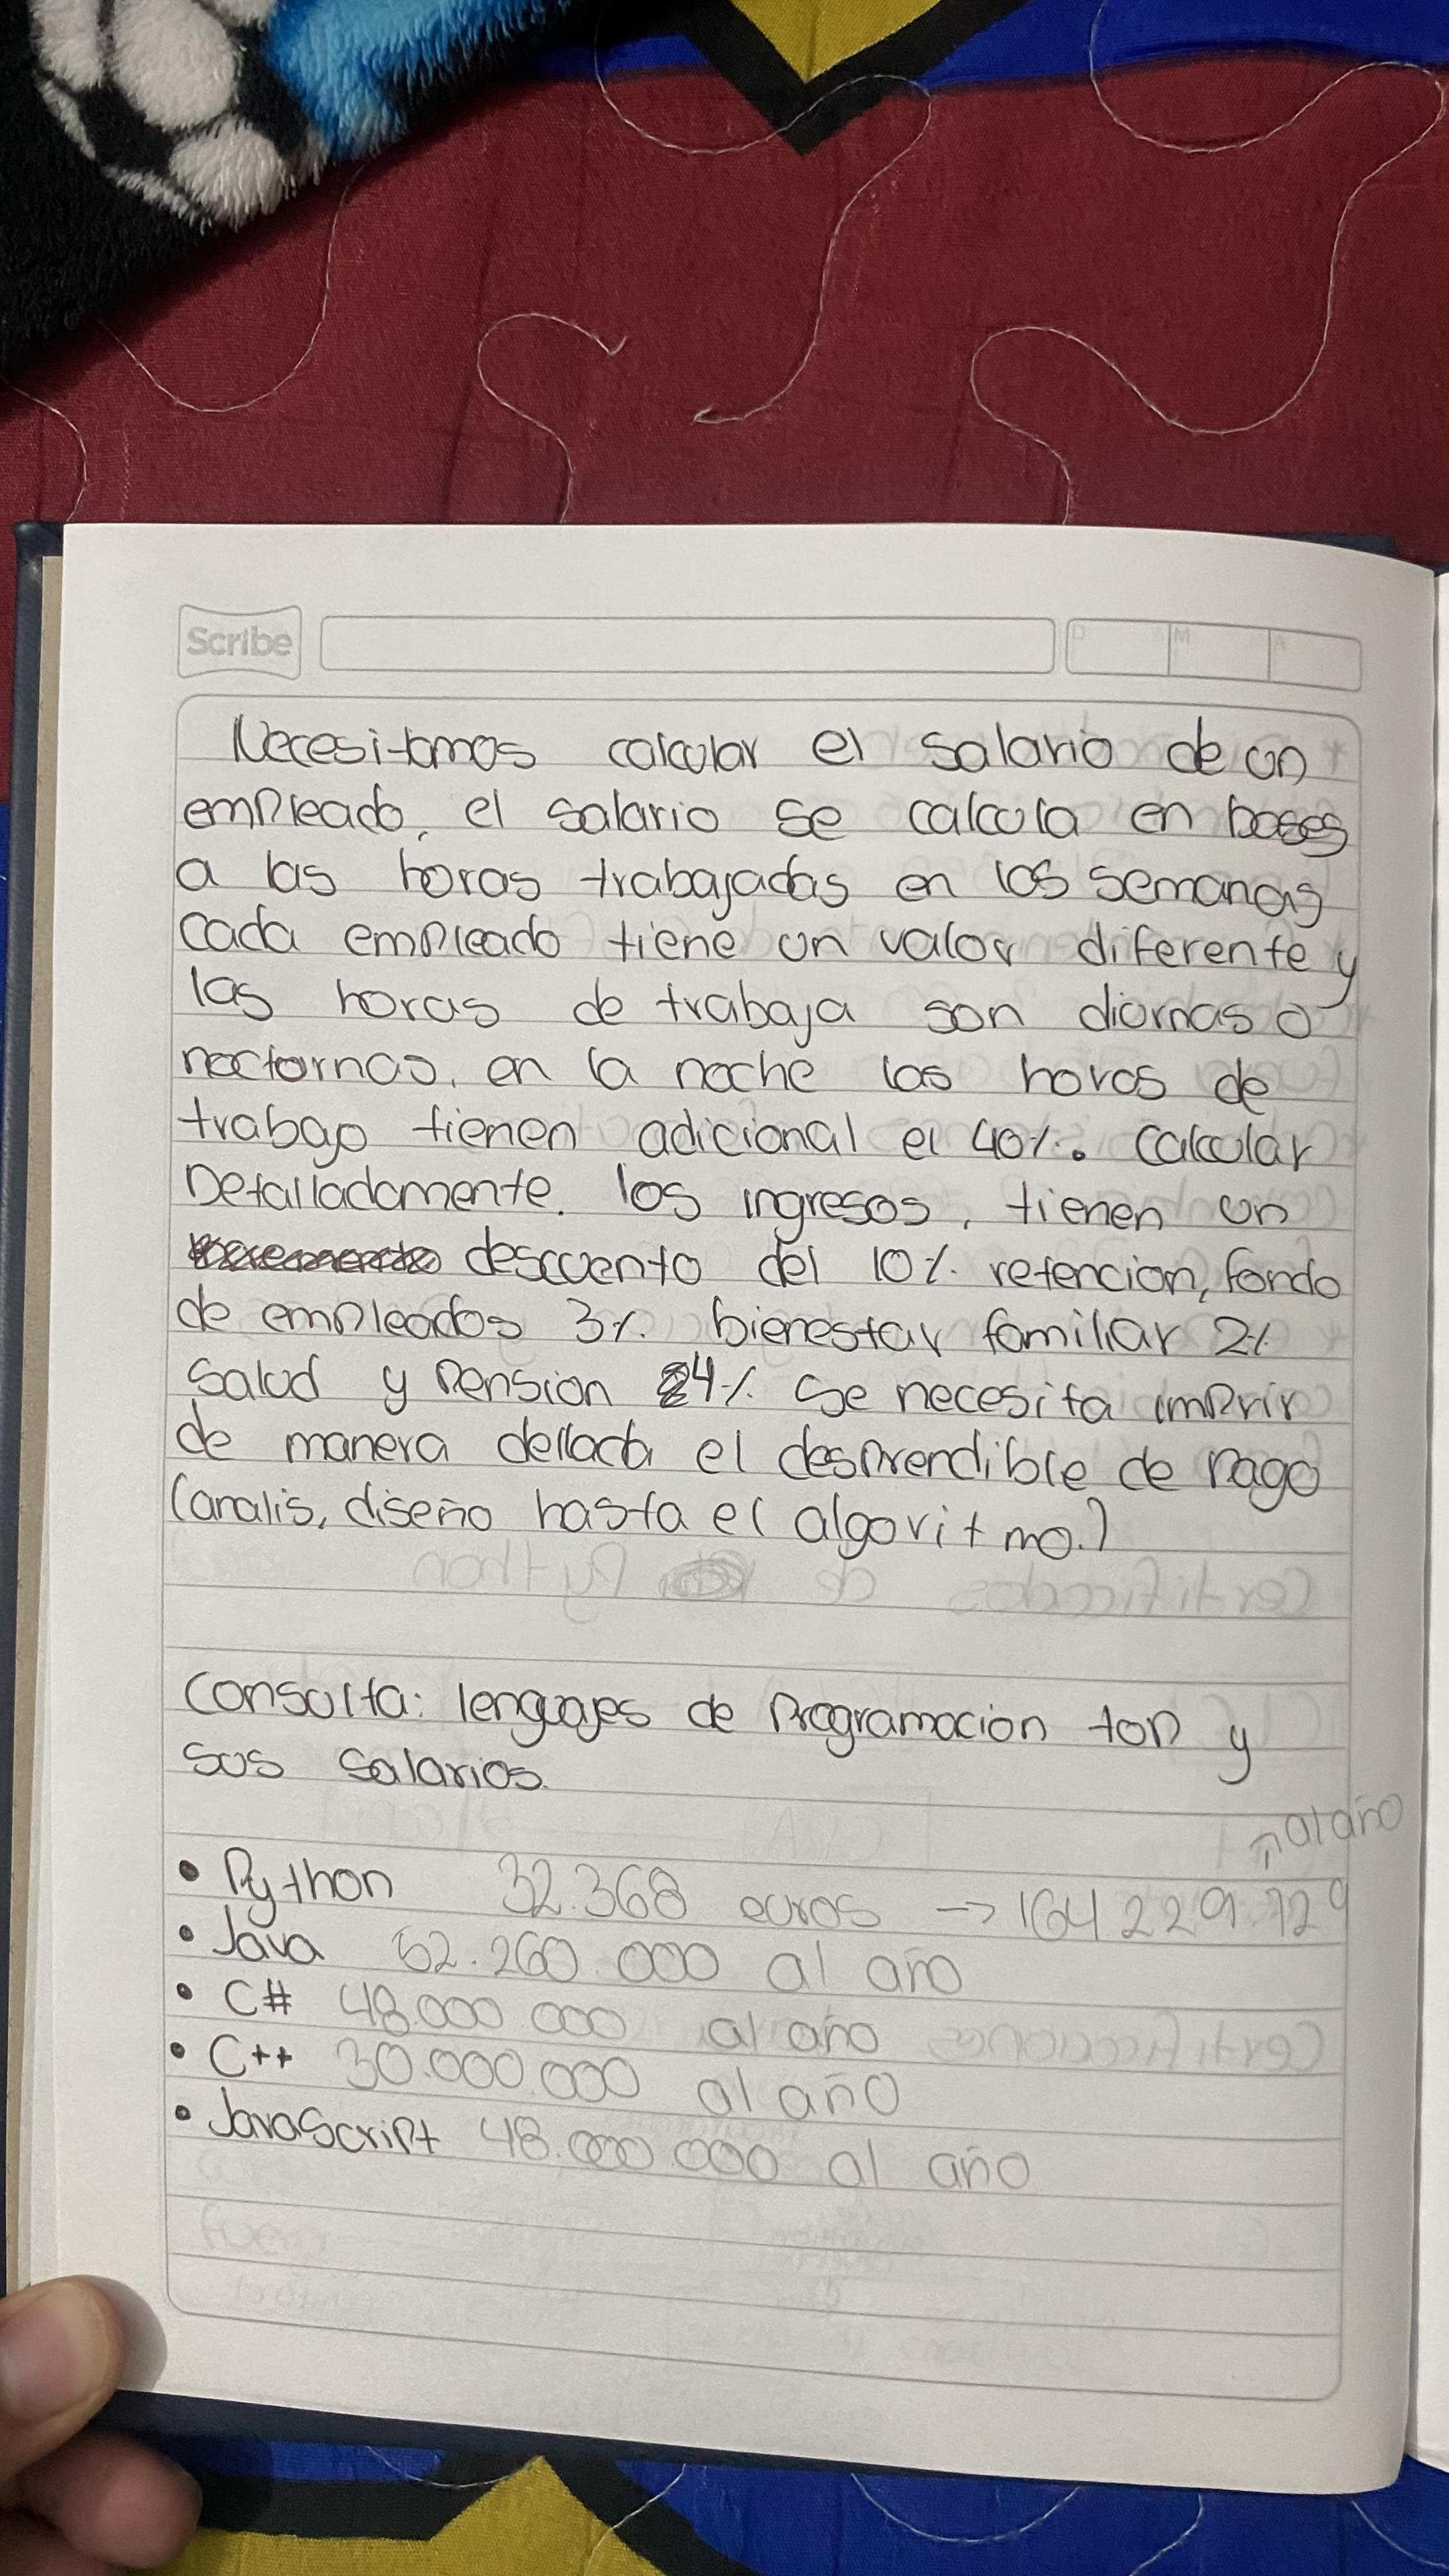 Scribe
D M A
Necesitamos calcular el salario de un
empleado, el salario se calcula en bases
a las horas trabajadas en las semanas
cada empleado tiene un valor diferente y
las horas de trabaja son diurnas o
nocturnas, en la noche las horas de
trabajo tienen adicional el 40%. Calcular
Detalladamente. los ingresos, tienen un
descuento del 10% retencion, fondo
de empleados 3% bienestar familiar 2%
Salud y Pension 4% Se necesita imprir
de manera dellada el desprendible de pago
(analis, diseño hasta el algoritmo.)
Consulta: lenguajes de Programacion top y
sus salarios.
al año
• Python 32.368 euros → 164.229.729
• Java 62.260.000 al año
• C# 48.000.000 al año
• C++ 30.000.000 al año
• JavaScript 48.000.000 al año